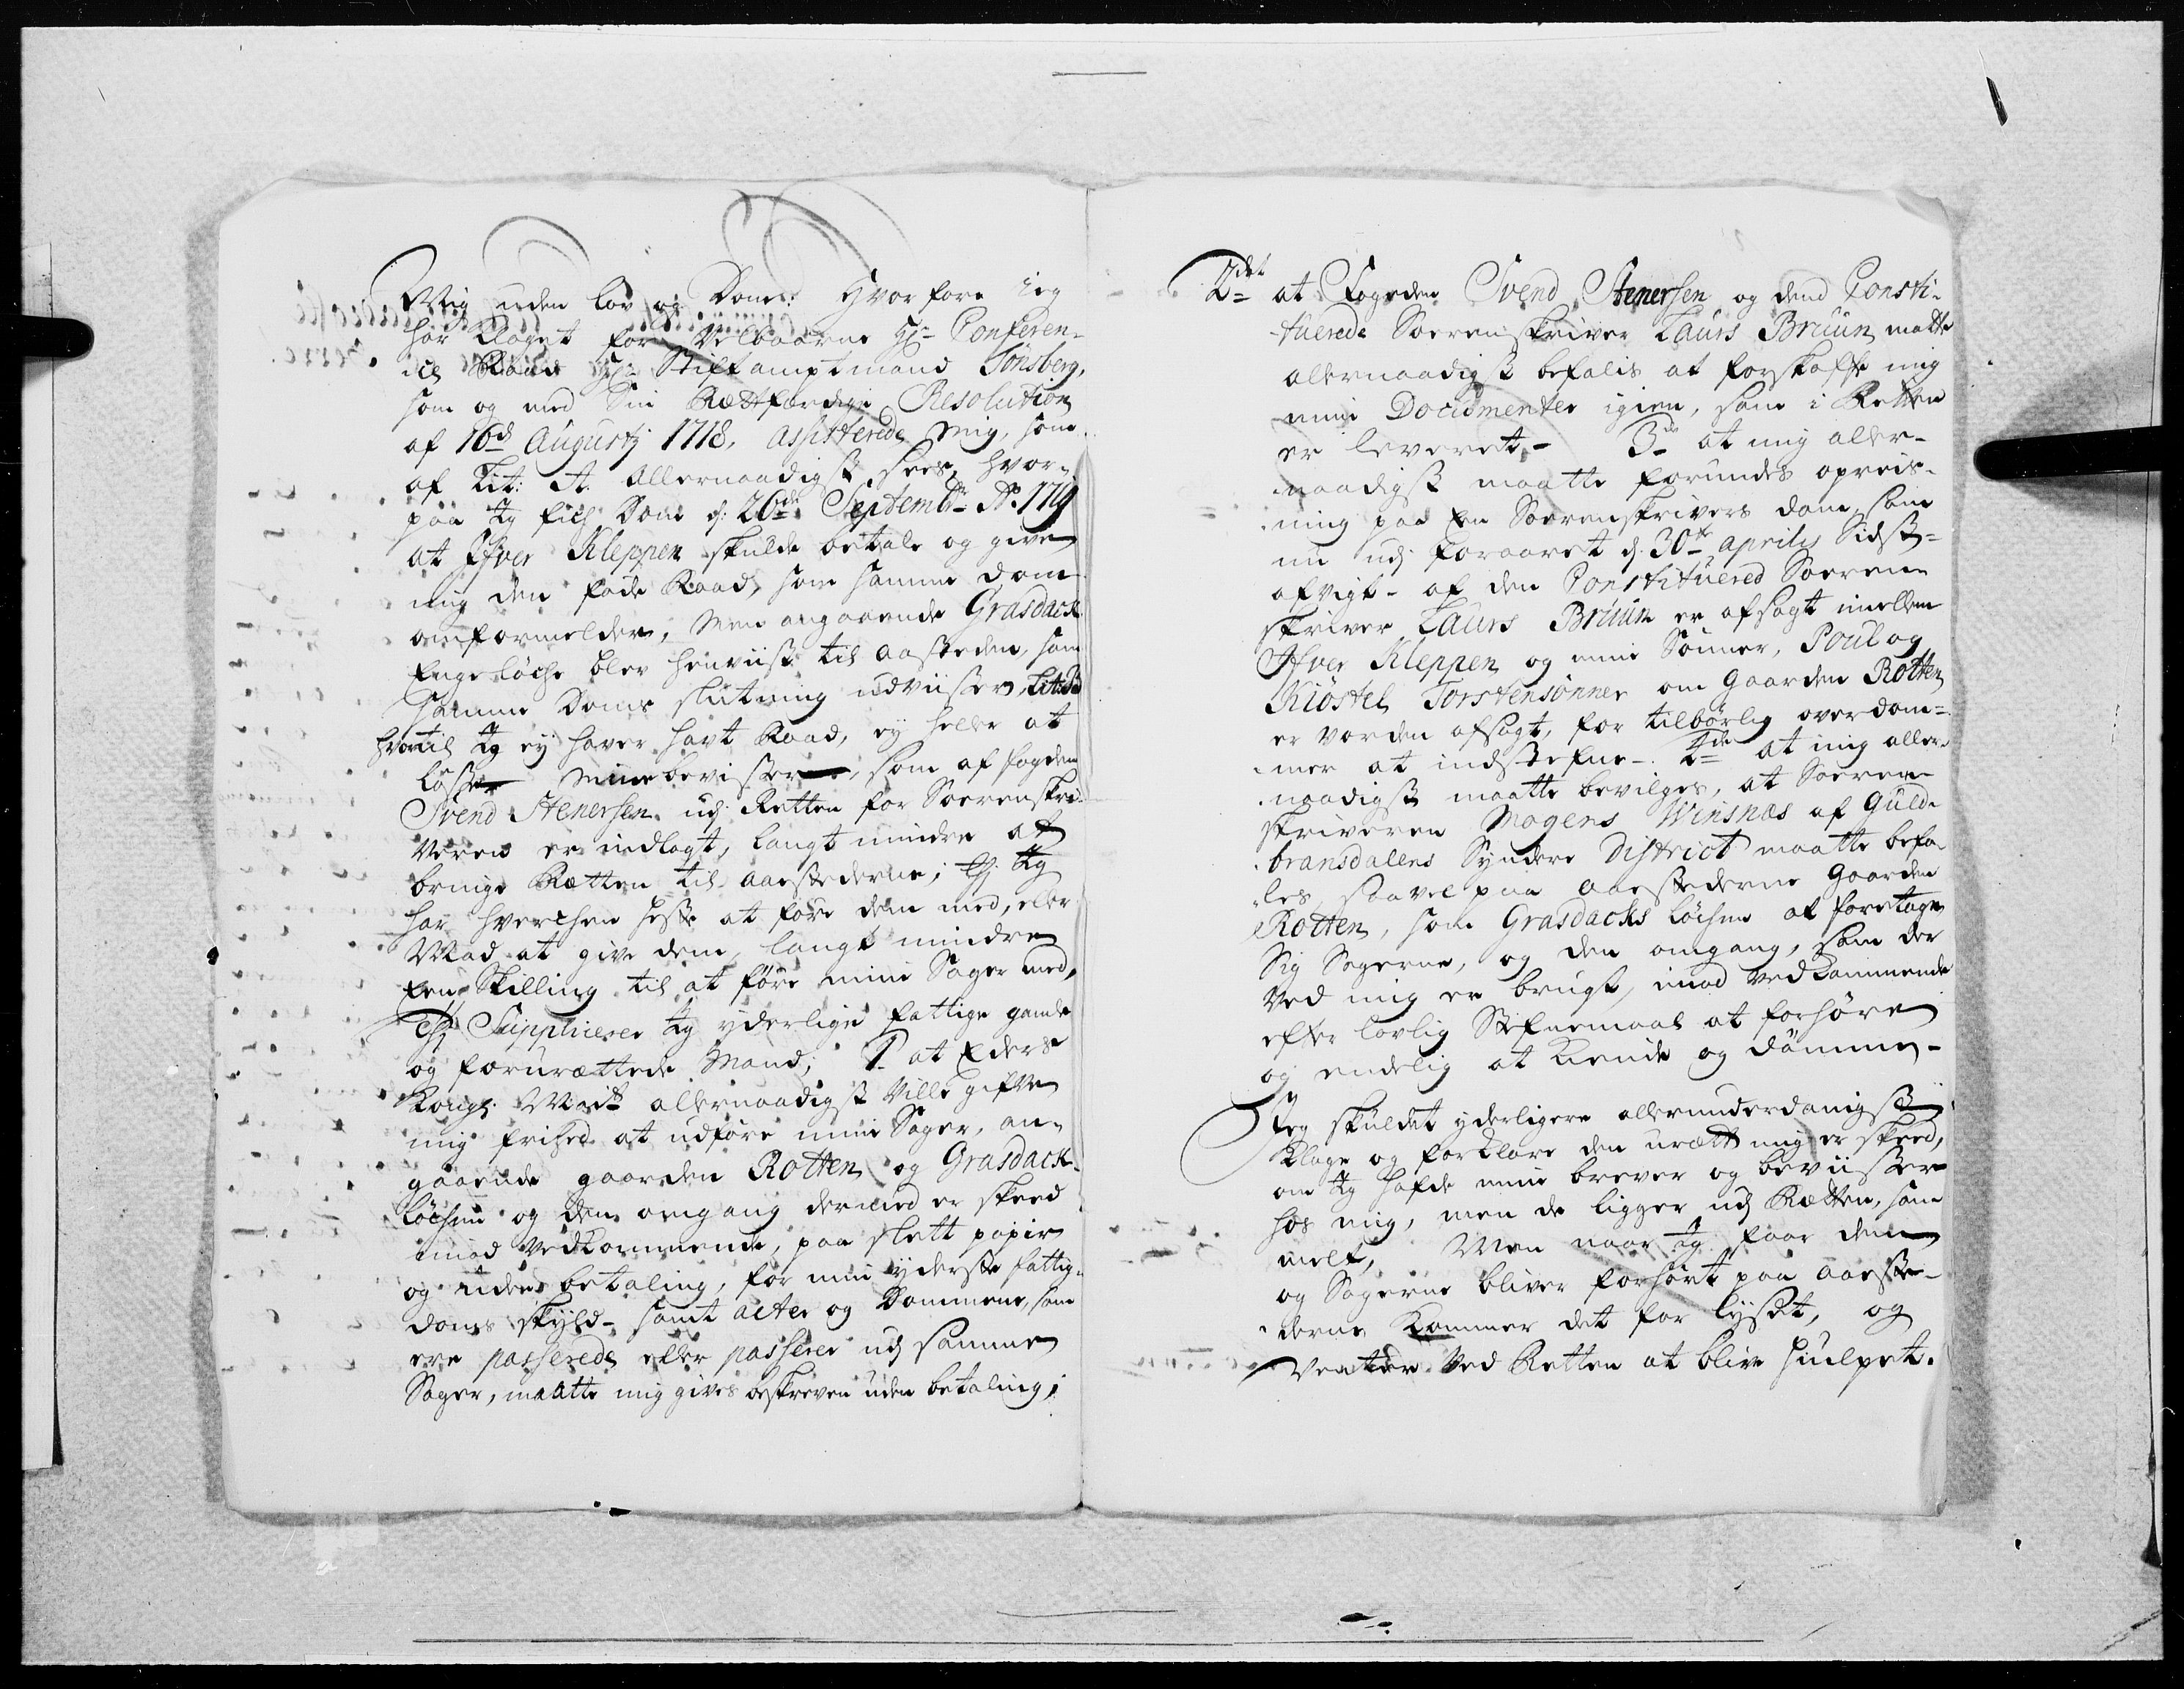 Mig uden lov og Dom: Hvorfore ieg
har klaget for Velbaarne Hr. Conferen-
ce Raad Hr. Stiftamptmand Tønsberg,
som og med Sin Rettfærdige Resolution
af 16d Augustij 1718. assisterede mig, som
af Lit: A. allernaadigst sees, hvor-
paa Jeg fich Dom d: 26de Septembr. Ao. 1719
at Ifver Kleppen skulde betale og give
mig den føde Raad, som samme dom
omformelder; men angaaende Grasdack
Enge løche blev henviist til aasteden, som
samme Doms slutning udviiser, Lit: B.
hvortil Jeg ej haver havt Raad, ej heller at
løsse mine beviser, som af fogden
Svend Stenersen udj Retten for Sorenskri-
veren er indlagt, langt mindre at
bringe Retten til aastederne; thj Jeg
har hverchen heste at føre dem med, eller
Mad at give dem, langt mindre
Een Skilling til at føre mine Sager med,
Thj Supplicerer Jeg yderlige fattige gamle
og forurættede Mand; 1. at Eders
Kongl: Maytt allernaadigst ville gifve
mig frihed at udføre mine Sager, an-
gaaende gaarden Rotten og Grasdack
løchen og den omgang dermed er skeed
imod vedkommende, paa slett papir
og uden betaling, for min yderste fattig-
doms skyld - samt acter og Dommene, som
ere passerede eller passerer udj samme
Sager, maatte mig gives beskreven uden betaling;
2det at Fogeden Svend Stenersen og dend Consti-
tuerede Sorenskriver Laurs Bruun matte
allernaadigst befalis at forskaffe mig
mine Documenter igien, som i Retten
er leveret - 3die at mig aller-
naadigst maatte forundes opreis-
ning paa en Sorenskrivers dom, som
nu udj foraaret d. 30te aprilis Sidst-
afvigt - af den Constituered Soren-
skriver Laurs Bruun er afsagt imellem
Ifver Kleppen og mine Sønner, Poul og
Kiøstel Torstensønner om gaarden Rotten
er vorden afsagt, for tilbørlig overdom-
mer at indstefne - 4de at mig aller-
naadigst maatte bevilges, at Soren-
skriveren Mogens Winsnæs af Guld-
bransdalens Syndere District maatte befa-
les, saavel paa aastederne Gaarden
Rotten, som Grasdacks løchen at foretage
Sig Sagerne, og den omgang, som der
ved mig er brugt, imod vedkommende
efter lovlig Stefnemaal at forhøre
og endelig at kiende og dømme -
Jeg skuldet yderligere allerunderdanigst
klage og forklare den urætt mig er skeed,
om Jeg hafde mine brever og beviiser
hos mig, men de ligger udj Retten, som
melt, Men naar Jeg faar dem
og Sagerne bliver forhørt paa aaste-
derne kommer det for lyset, og
venter ved Retten at blive hiulpet.